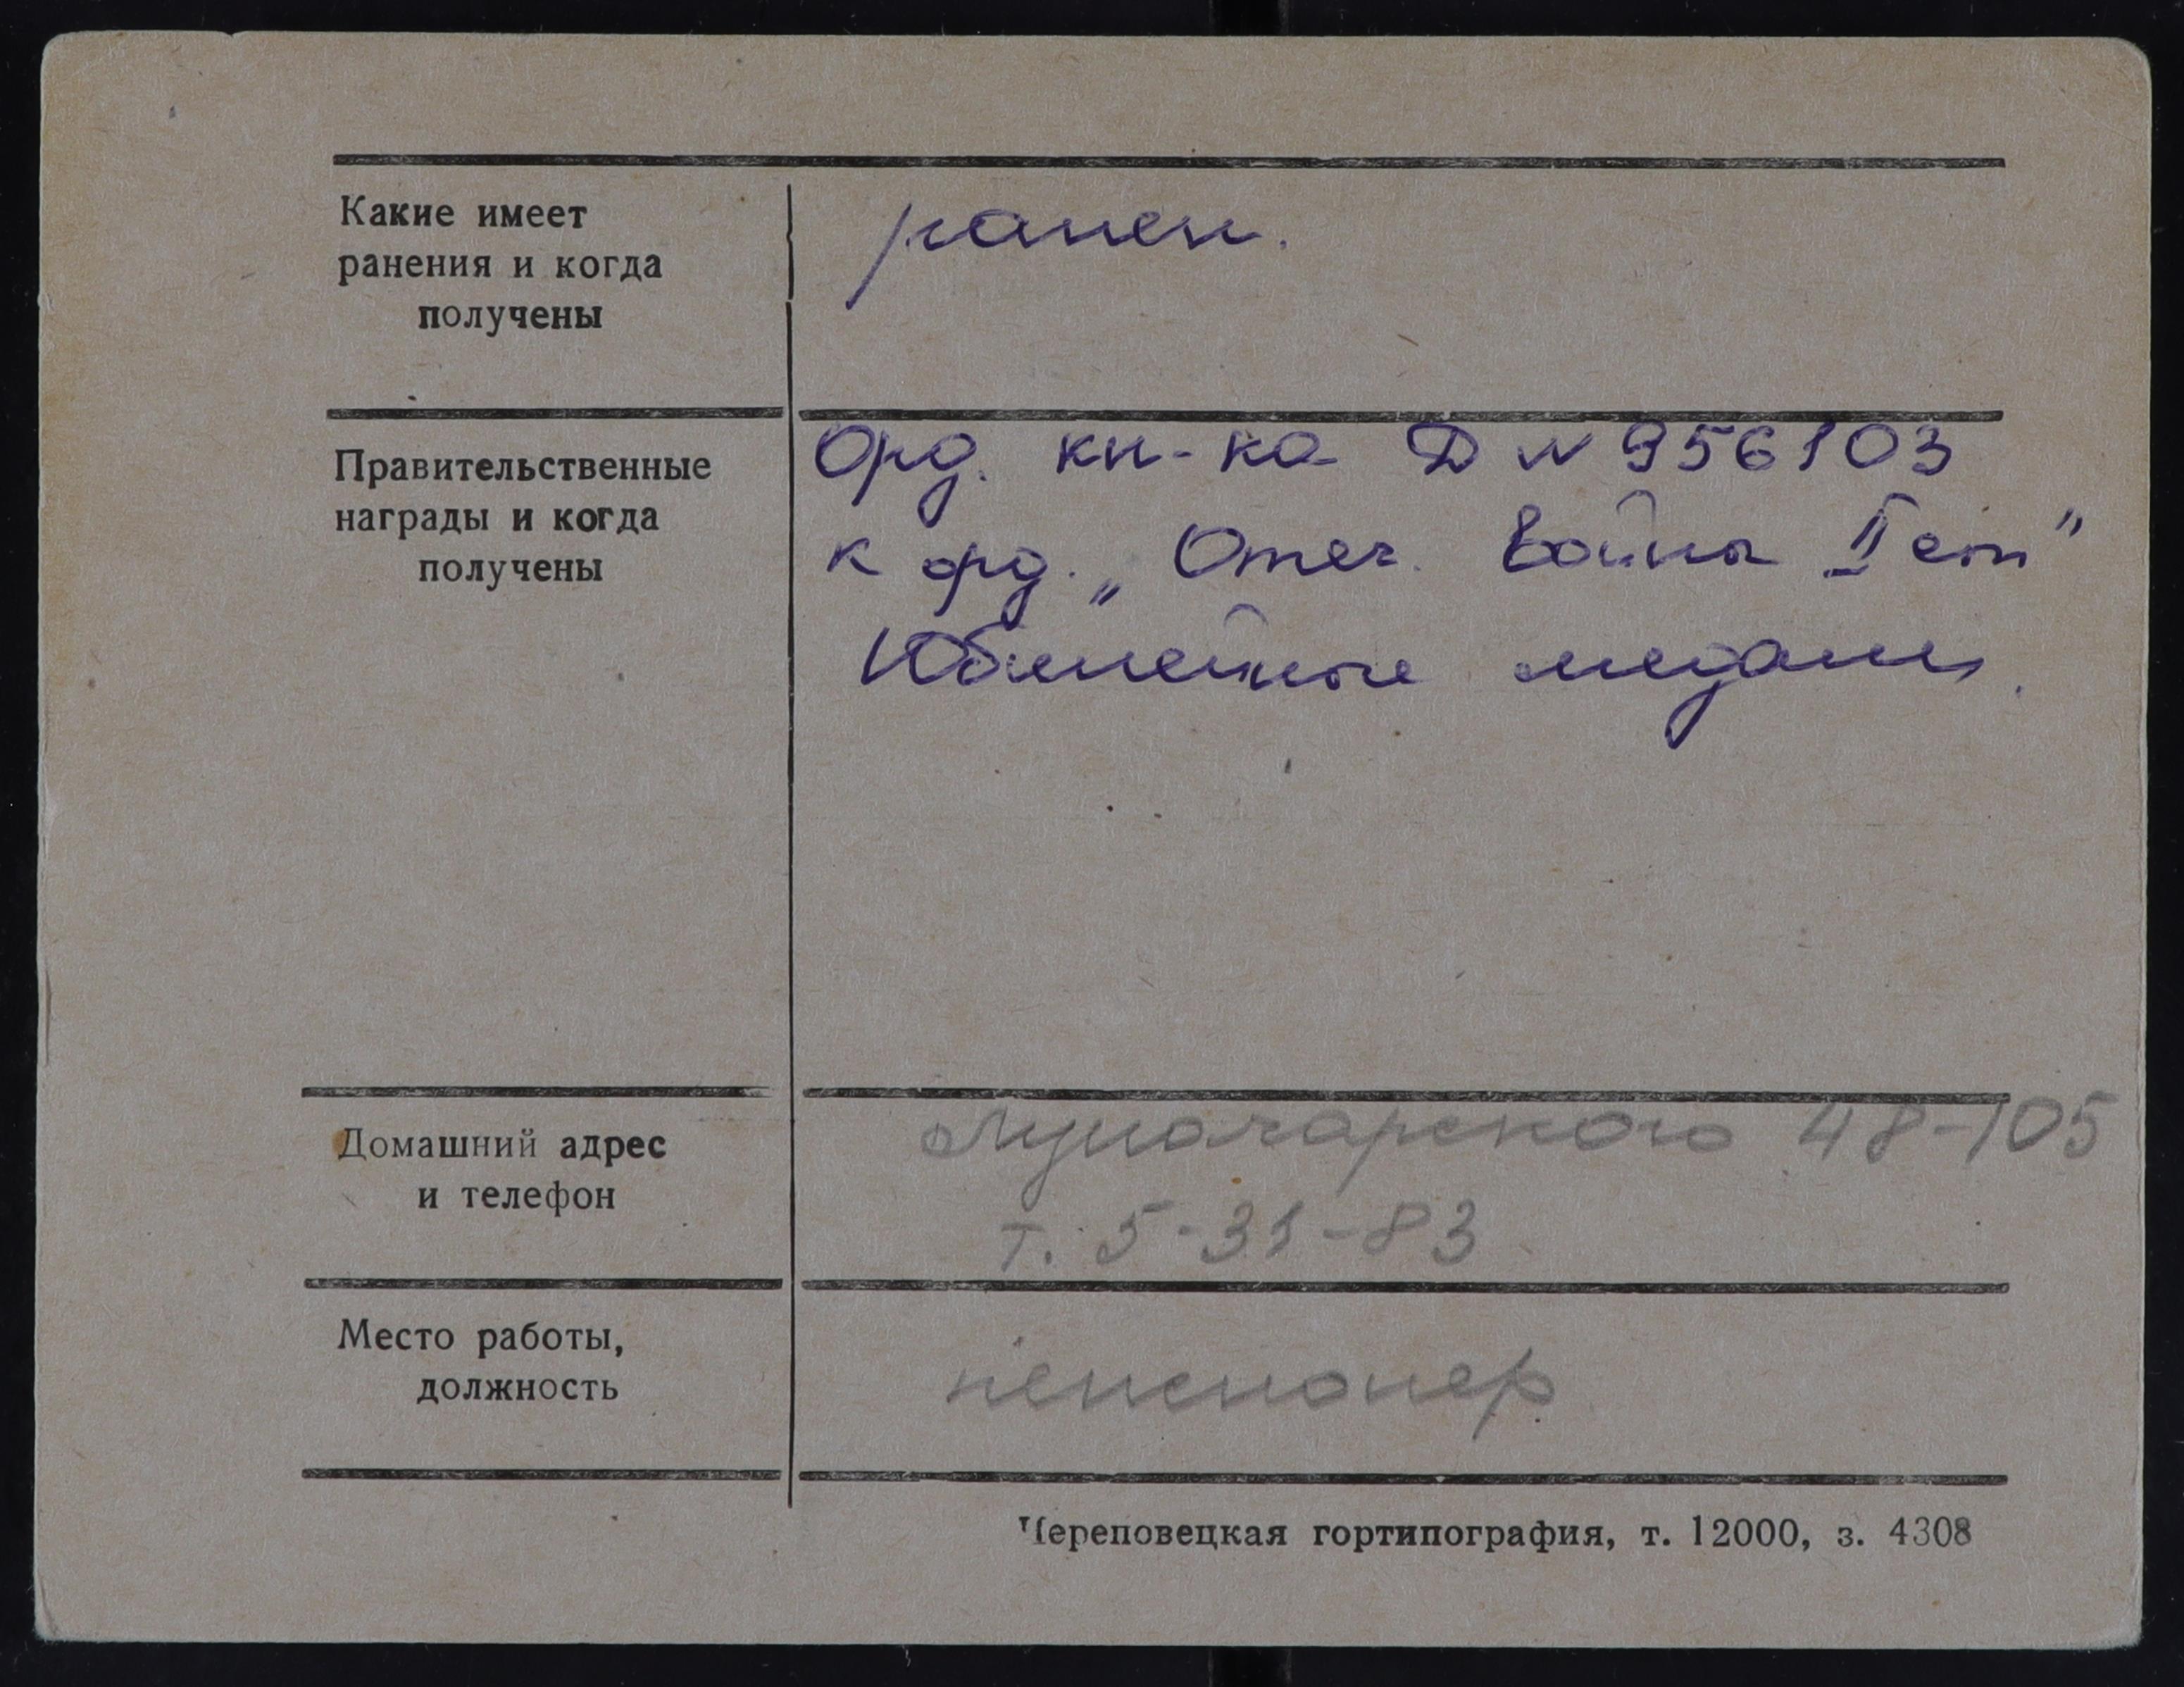 Какие имеет
ранения и когда
получены
ранен.
Правительственные
награды и когда
получены
Орд. кн-ка Д № 956103
к орд. „Отеч. Войны II ст"
Юбилейные медали.
Домашний адрес
и телефон
Луначарского 48-105
т. 5-31-83
Место работы,
должность
пенсионер
Череповецкая гортипография, т. 12000, з. 4308